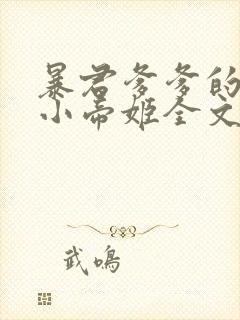 暴君爹爹的
小帝姬全文
武鸣